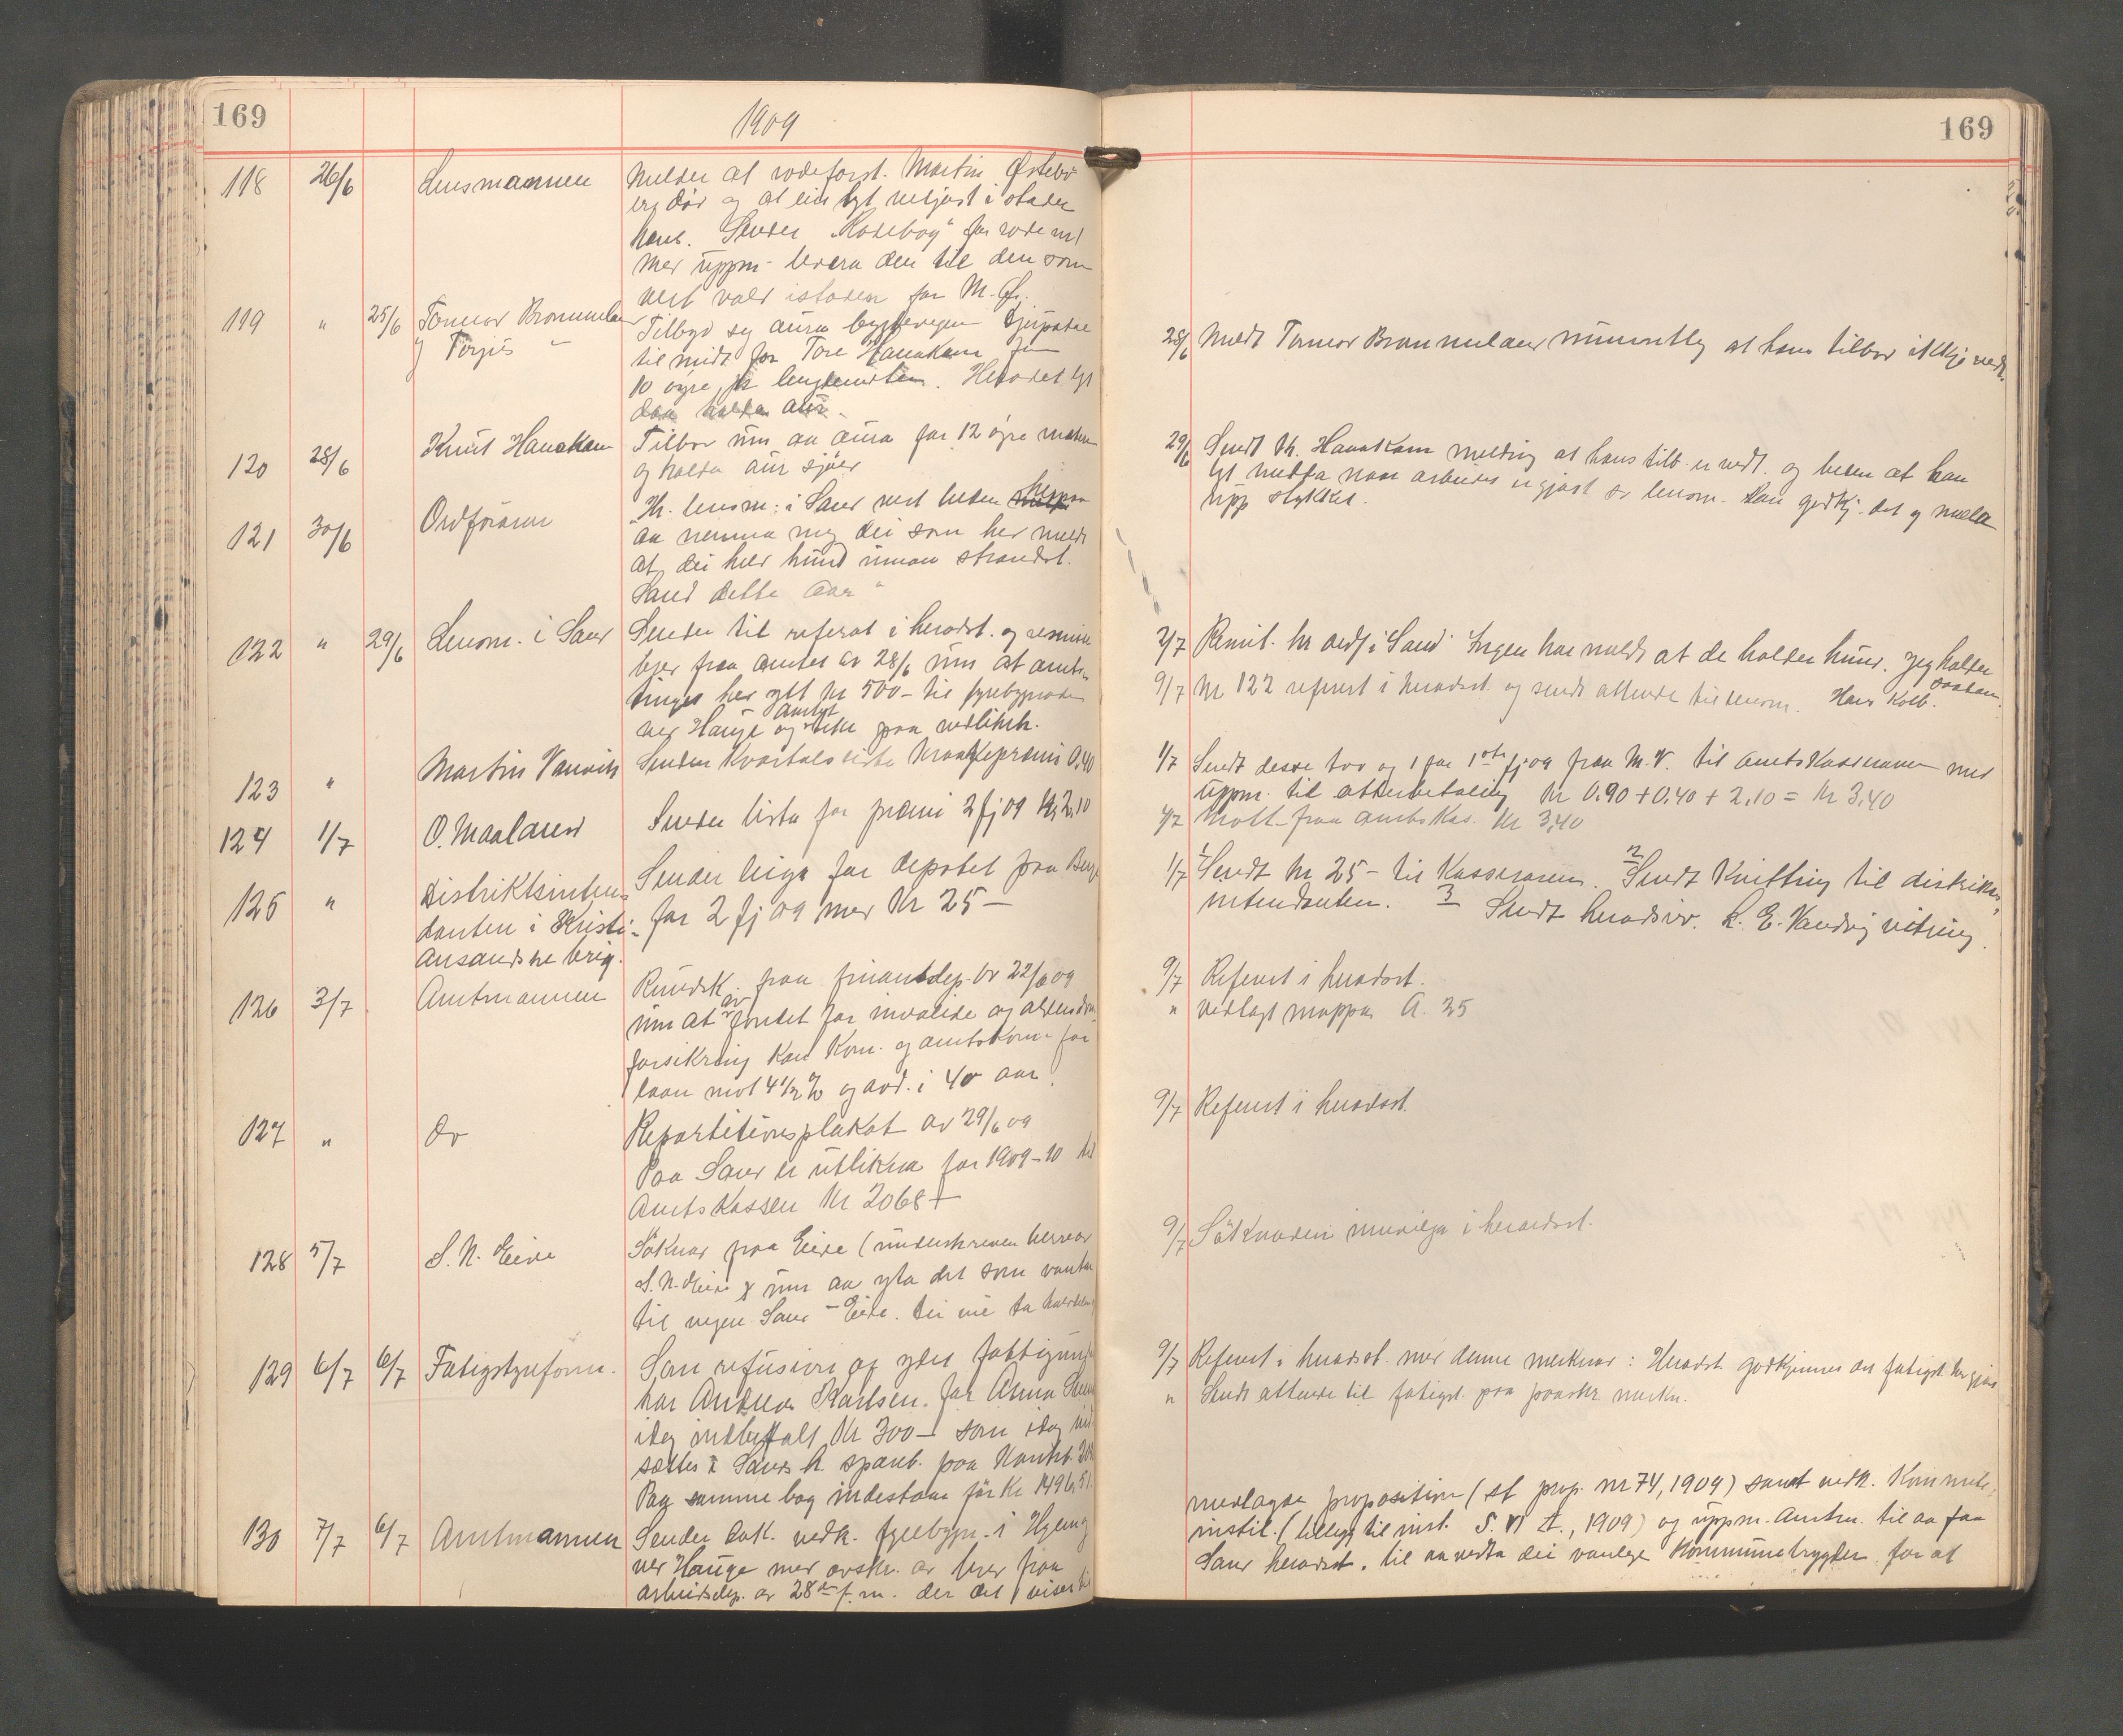 169
1909
118 26/6 Lensmannen Melder at rodeforst. Martin Østebø
er död og at ein lyt veljast i staden
hans. Sender "Rodebog" for rode nr 1
med uppm. levera den til den som
vert vald istaden for M. Ø.
119 " 25/6 Tormod Brommeland Tilbyd seg aura bygdevegen
og Torjus " til midt for Tore Hanakam for
10 øyre pr lengdemeter. Heradet lyt
daa halda aur.
120 28/6 Knut Hanakam Tilbod um aa aura for 12 øyre meteren
og halda aur sjølv
121 30/6 Ordføraren "Hr. lensm. i Sand vert beden herpaa
aa nemna meg dei som her meldt
at dei held hund innan strandst.
Sand dette aar"
122 " 29/6 Lensm. i Sand Sender til referat i heradst. og
brev fraa amtet av 28/6 um at amts-
tinget her ytt Kr 500- til fyrebygnader
ved Hauge og amtet ikke paa vedlikeh.
123 " Martin Vanvik Sender Kvartalsliste Kraakepræmi 0,40
124 1/7 O. Maaland Sender lista for præmi 2 fj 09 Kr 2,10
125 " Distriktsinten- Sender leiga for depotet paa Berge
danten i Kristi- for 2 fj 09 med Kr 25-
ansandske brig.
126 3/7 Amtmannen Rundsk. fraa finantsdep. av 22/6 09
um at av fondet for invalide og alderdoms
forsikring kan Kom. og amtskom. faa
laan mot 4 1/2 % og avd. i 40 aar.
127 " do Repartitionsplakat av 29/6 09
Paa Sand er utlikna for 1909-10 til
Amtskassen Kr 2068 +
128 5/7 S. N. Eide Söknad fraa Eide (underskreven herrar
S. N. Eide um aa yta det som vantar
til vegen Sand - Eide. Dei vil ta
129 6/7 6/7 Fatigstyreform. Som refusion av ydet fattigunder
har Andrea Karlsen for Anna
idag indbetalt Kr 300- som idag ind
sættes i Sands h. spareb. paa Kontrab.
Paa samme bog indestaar før Kr 1496,51
130 7/7 6/7 Amtmannen Sender Dok. vedk. fyrebygn. i
ved Hauge med avskr. av brev fraa
arbeidsdep. av 28de f. m. der det viser til
169
28/6 Meldt Tormod Brommeland munnotleg at hans tilbod ikkje vedt.
29/6 Sendt K. Hanakam melding at hans tilb. er vedt. og beden at han
lyt melda naar arbeidet er gjort so lensm. kan godkj. det og mæla
upp stykket.
2/7 Remit. hr ordf i Sand Ingen har meldt at de holder hund. Jeg holder
saadan. Hans Kolb.
9/7 Nr 122 referert i heradst. og sendt attende til lensm.
1/7 Sendt desse tvo og 1 for 1ste fj. 09 fraa M. V. til amtskassereren med
uppm. til atterbetaling Kr 0.90 + 0.40 + 2.10 = Kr 3,40
7/7 Mott. fraa amtskas. Kr 3,40
1/7 1 Sendt Kr 25- til Kassereren. 2 Sendt Kvittring til distrikts-
intendanten. 3 Sendt heradsrev. L. E. Vandvig vitring.
9/7 Referert i heradsst.
" vedlagt mappa A. 35
9/7 Referert i heradsst.
9/7 Söknaden innvilga i heradsst.
9/7 Referert i heradsst. med denne merknad: Heradst. godkjenner det fatigst. her gjort
" Sendt attende til fatigst. paa paaskr. merkn.
nedlagde proposition (st prop. nr 74, 1909) samt vedk. Komiteens
instil. (tillegg til inst. S. VI A, 1909) og uppm. Amtm. til aa faa
Sand heradst. til aa vedta dei vanlege Kommunetrygder for at